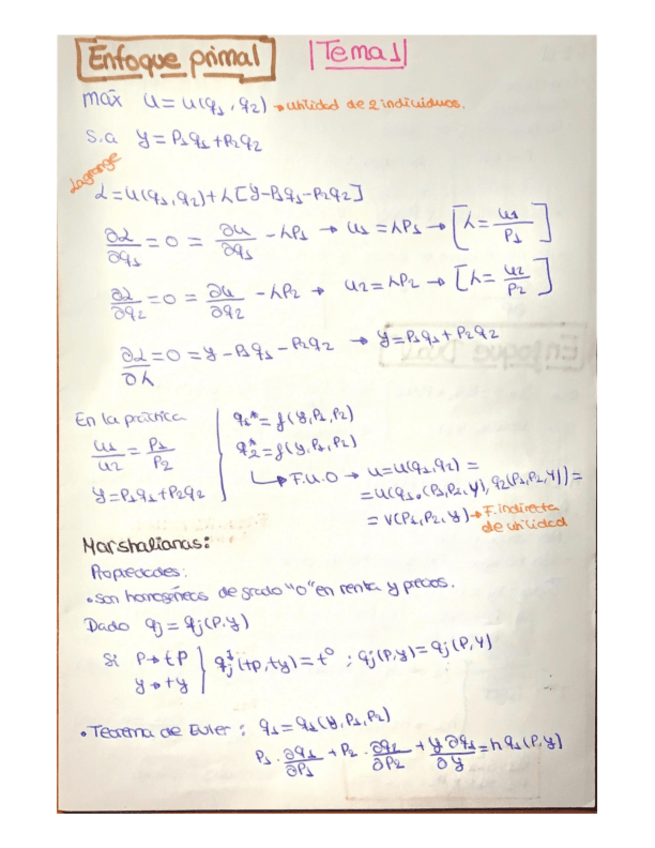 Enfoque primal
Tema 1
máx U = u(q₁, q₂) → utilidad de 2 individuos.
S.a y = P₁q₁ + P₂q₂
Lagrange
L = u(q₁, q₂) + λ[y - P₁q₁ - P₂q₂]
∂L/∂q₁ = 0 = ∂u/∂q₁ - λP₁ → u₁ = λP₁ → [λ = u₁/P₁]
∂L/∂q₂ = 0 = ∂u/∂q₂ - λP₂ → u₂ = λP₂ → [λ = u₂/P₂]
∂L/∂λ = 0 = y - P₁q₁ - P₂q₂ → y = P₁q₁ + P₂q₂
En la práctica
u₁/u₂ = P₁/P₂
y = P₁q₁ + P₂q₂
q₁* = f(y, P₁, P₂)
q₂* = f(y, P₁, P₂)
↳ F.U.O → u = u(q₁, q₂) =
= u(q₁*(P₁, P₂, y), q₂(P₁, P₂, y)) =
= v(P₁, P₂, y) → F. indirecta
de utilidad
Marshalianas:
Propiedades:
• son homogéneas de grado "0" en renta y precios.
Dado qⱼ = qⱼ(P, y)
Si P → tP
y → ty
qⱼ(tp, ty) = t⁰ ; qⱼ(P, y) = qⱼ(P, y)
• Teorema de Euler : q₁ = q₁(y, P₁, P₂)
P₁ · ∂q₁/∂P₁ + P₂ · ∂q₂/∂P₂ + y∂q₁/∂y = h q₁(P, y)